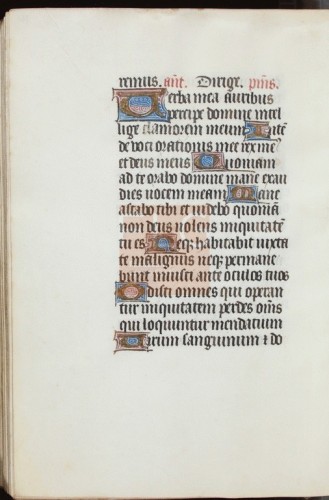 remus. añt. Dirige. pm̃s.
Verba mea auribus
percipe domine intel
lige clamorem meum Intẽ
de voci orationis mee rex me'
et deus meus Quoniam
ad te orabo domine mane exau
dies vocem meam Mane
astabo tibi et videbo quoniã
non deus volens iniquitatẽ
tu es Neq; habitabit iuxta
te malignus neq; permane
bunt iniusti ante oculos tuos
Odisti omnes qui operan
tur iniquitatem perdes om̃s
qui loquuntur mendacium
Virum sanguinum & do